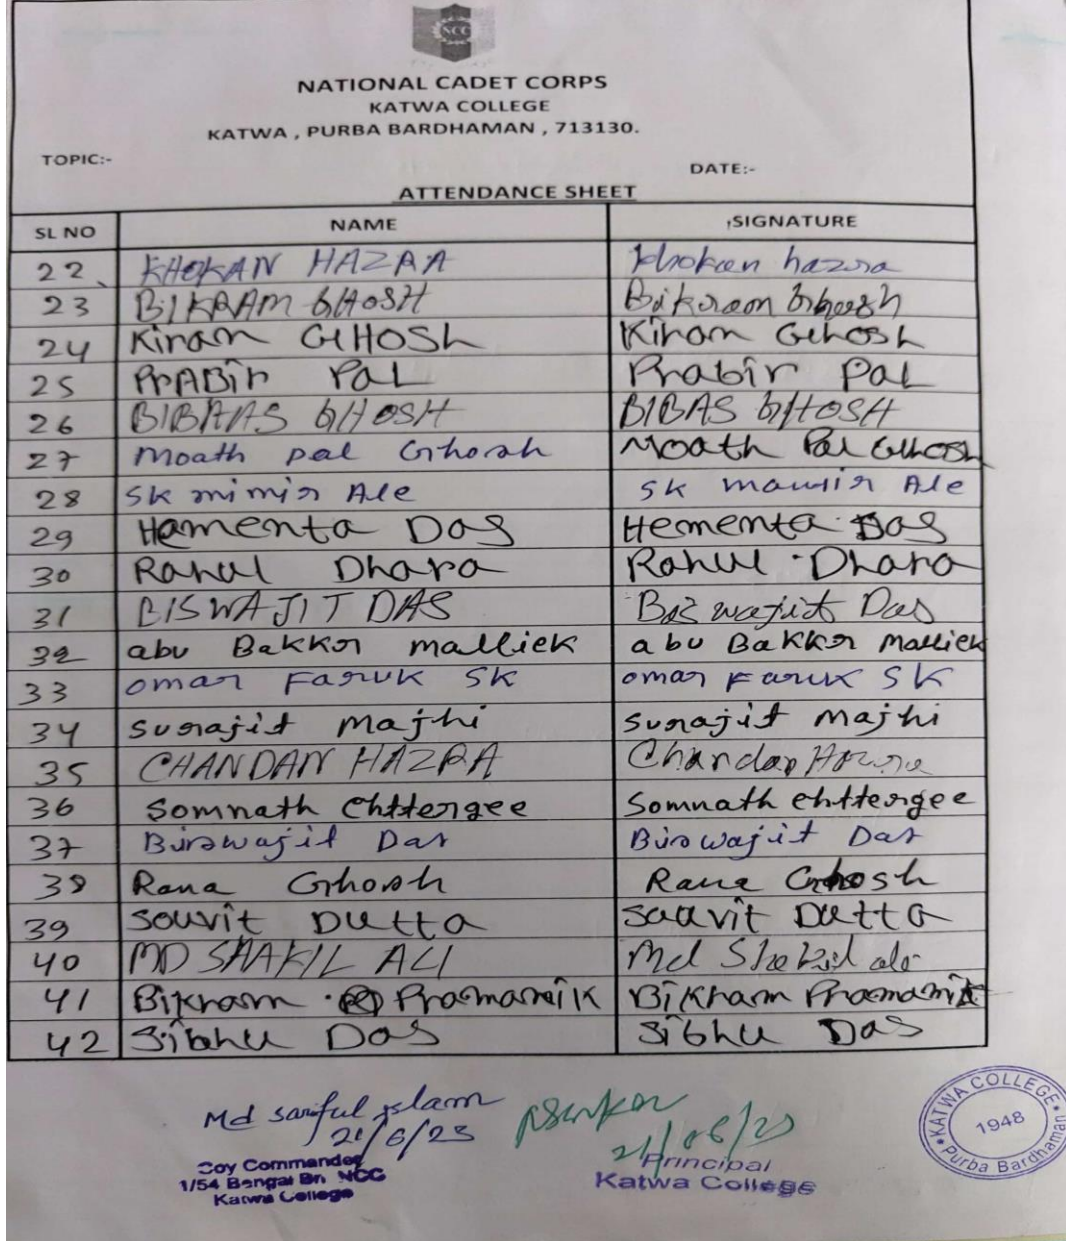 NCC
NATIONAL CADET CORPS
KATWA COLLEGE
KATWA , PURBA BARDHAMAN , 713130.
TOPIC:-
DATE:-
ATTENDANCE SHEET
SL NO NAME SIGNATURE
22 KHOKAN HAZRA khokan hazra
23 BIKRAM GHOSH Bikram Ghosh
24 Kiran GHOSh Kiran Ghosh
25 PrABir PaL Prabir PaL
26 BIBHAS GHOSH BIBAS GHOSH
27 Moath pal Ghosh Moath Pal Ghosh
28 SK mimir Ale SK Ale
29 Hamenta Das Hementa Das
30 Rahul Dhara Rahul Dhara
31 BISWAJIT DAS Biswajit Das
32 abu Bakkor malliek abu Bakkor Malliek
33 omar Faruk SK omar Faruk SK
34 Surajit Majhi Surajit Majhi
35 CHANDAN HAZRA Chandan Hazra
36 Somnath Chttergee Somnath Chttergee
37 Biswajit Das Biswajit Das
38 Rana Ghosh Rana Ghosh
39 Souvit Dutta Souvit Dutta
40 MD SHAKIL ALI Md Shakil ali
41 Bikram Pramanik Bikram Pramanik
42 Sibhu Das Sibhu Das
Md sariful islam
21/6/23 21/06/23
Coy Commander Principal
1/54 Bengal Bn NCC Katwa College
Katwa College
KATWA COLLEGE
1948
Purba Bardhaman